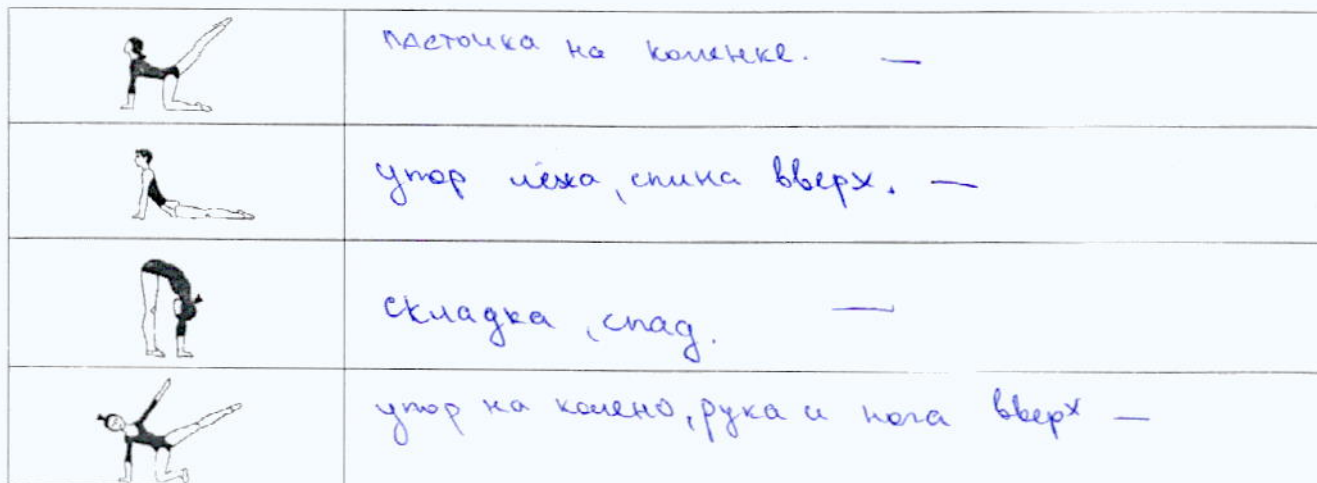 ласточка на коленке. —
упор лёжа, спина вверх. —
складка, спад. —
упор на колено, рука и нога вверх —